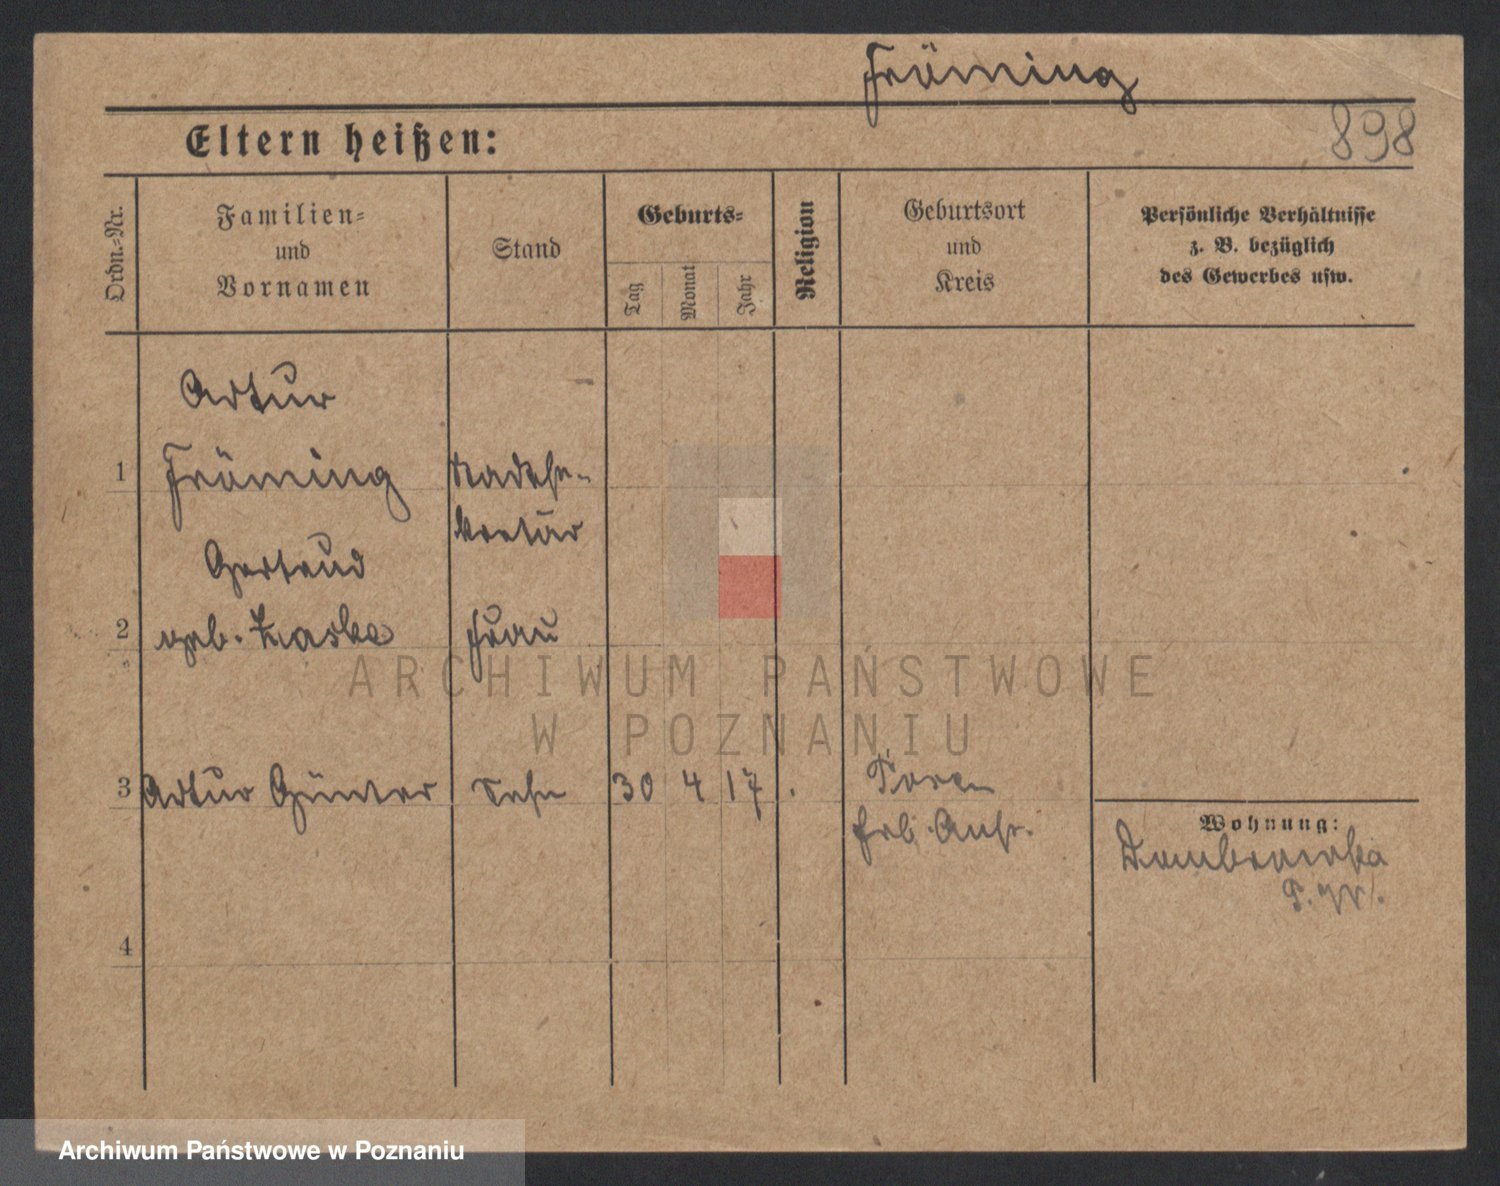 Fröming
898
Eltern heißen:
Ordn.-Nr.
Familien-
und
Vornamen
Stand
Geburts-
Tag
Monat
Jahr
Religion
Geburtsort
und
Kreis
Persönliche Verhältnisse
z. B. bezüglich
des Gewerbes usw.
Artur
1 Fröming Stadtse-
kretär
Gertrud
2 geb. Frau
3 Artur Günter Sohn 30 4 17
Wohnung:
4
ARCHIWUM PAŃSTWOWE
W POZNANIU
Archiwum Państwowe w Poznaniu